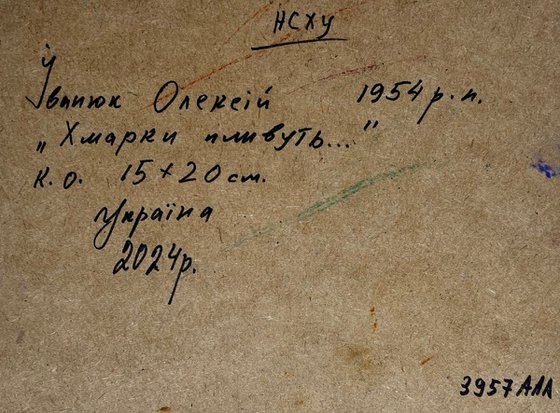 НСХУ
Іванюк Олексій 1954 р. н.
„Хмарки пливуть..."
К. О. 15 × 20 см.
Україна
2024 р.
3957 АЛЛ